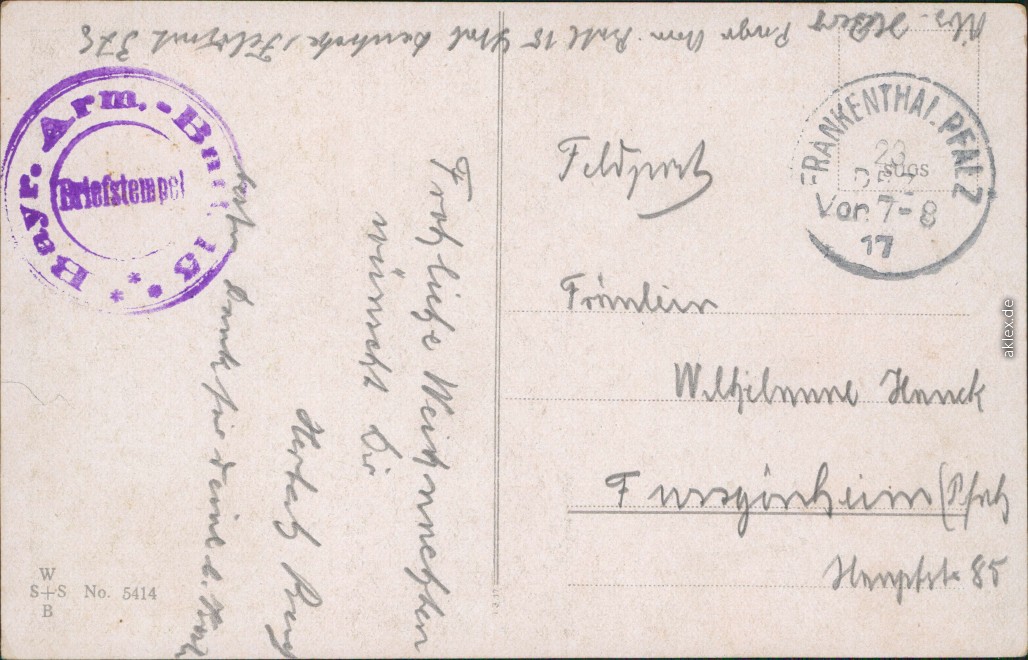 Abs. Batl 15 378
Bayr. Arm.-Batl. 15
Briefstempel
Frohliche Weihnachten
wünscht Dir
Herbert
besten Dank für deine l.
Feldpost
FRANKENTHAL PFALZ
23
DEZ
Vor. 7-8
17
SÜGS
Fräulein
Wilhelmine Hauck
Fussgönheim (Pfalz
Hauptstr 85
W
S+S No. 5414
B
aklex.de